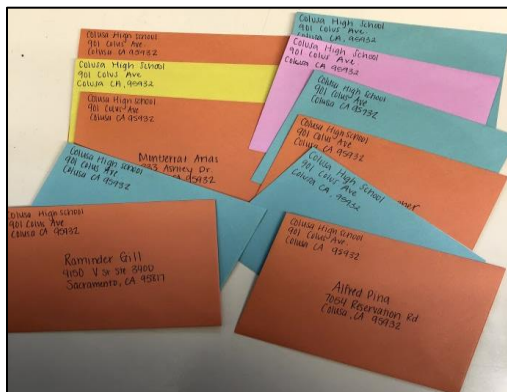 Colusa High School
901 Colus Ave.
Colusa CA 95932
Colusa High School
901 Colus Ave
Colusa CA, 95932
Colusa High School
901 Colus Ave
Colusa CA 95932
Montserrat Arias
Ashley Dr
CA 95932
Colusa High School
901 Colus Ave
Colusa CA 95932
Colusa High School
901 Colus Ave
Colusa CA 95932
Raminder Gill
4150 V St Ste 3400
Sacramento, CA 95817
Colusa High School
901 Colus Ave.
Colusa CA, 95932
Colusa High School
901 Colus Ave.
Colusa CA, 95932
Colusa High School
901 Colus Ave
Colusa CA 95932
Colusa High School
901 Colus Ave
Colusa CA 95932
Colusa High School
901 Colus Ave
Colusa CA, 95932
Colusa High School
901 Colus Ave.
Colusa CA 95932
Alfred Pina
7064 Reservation Rd
Colusa, CA 95932